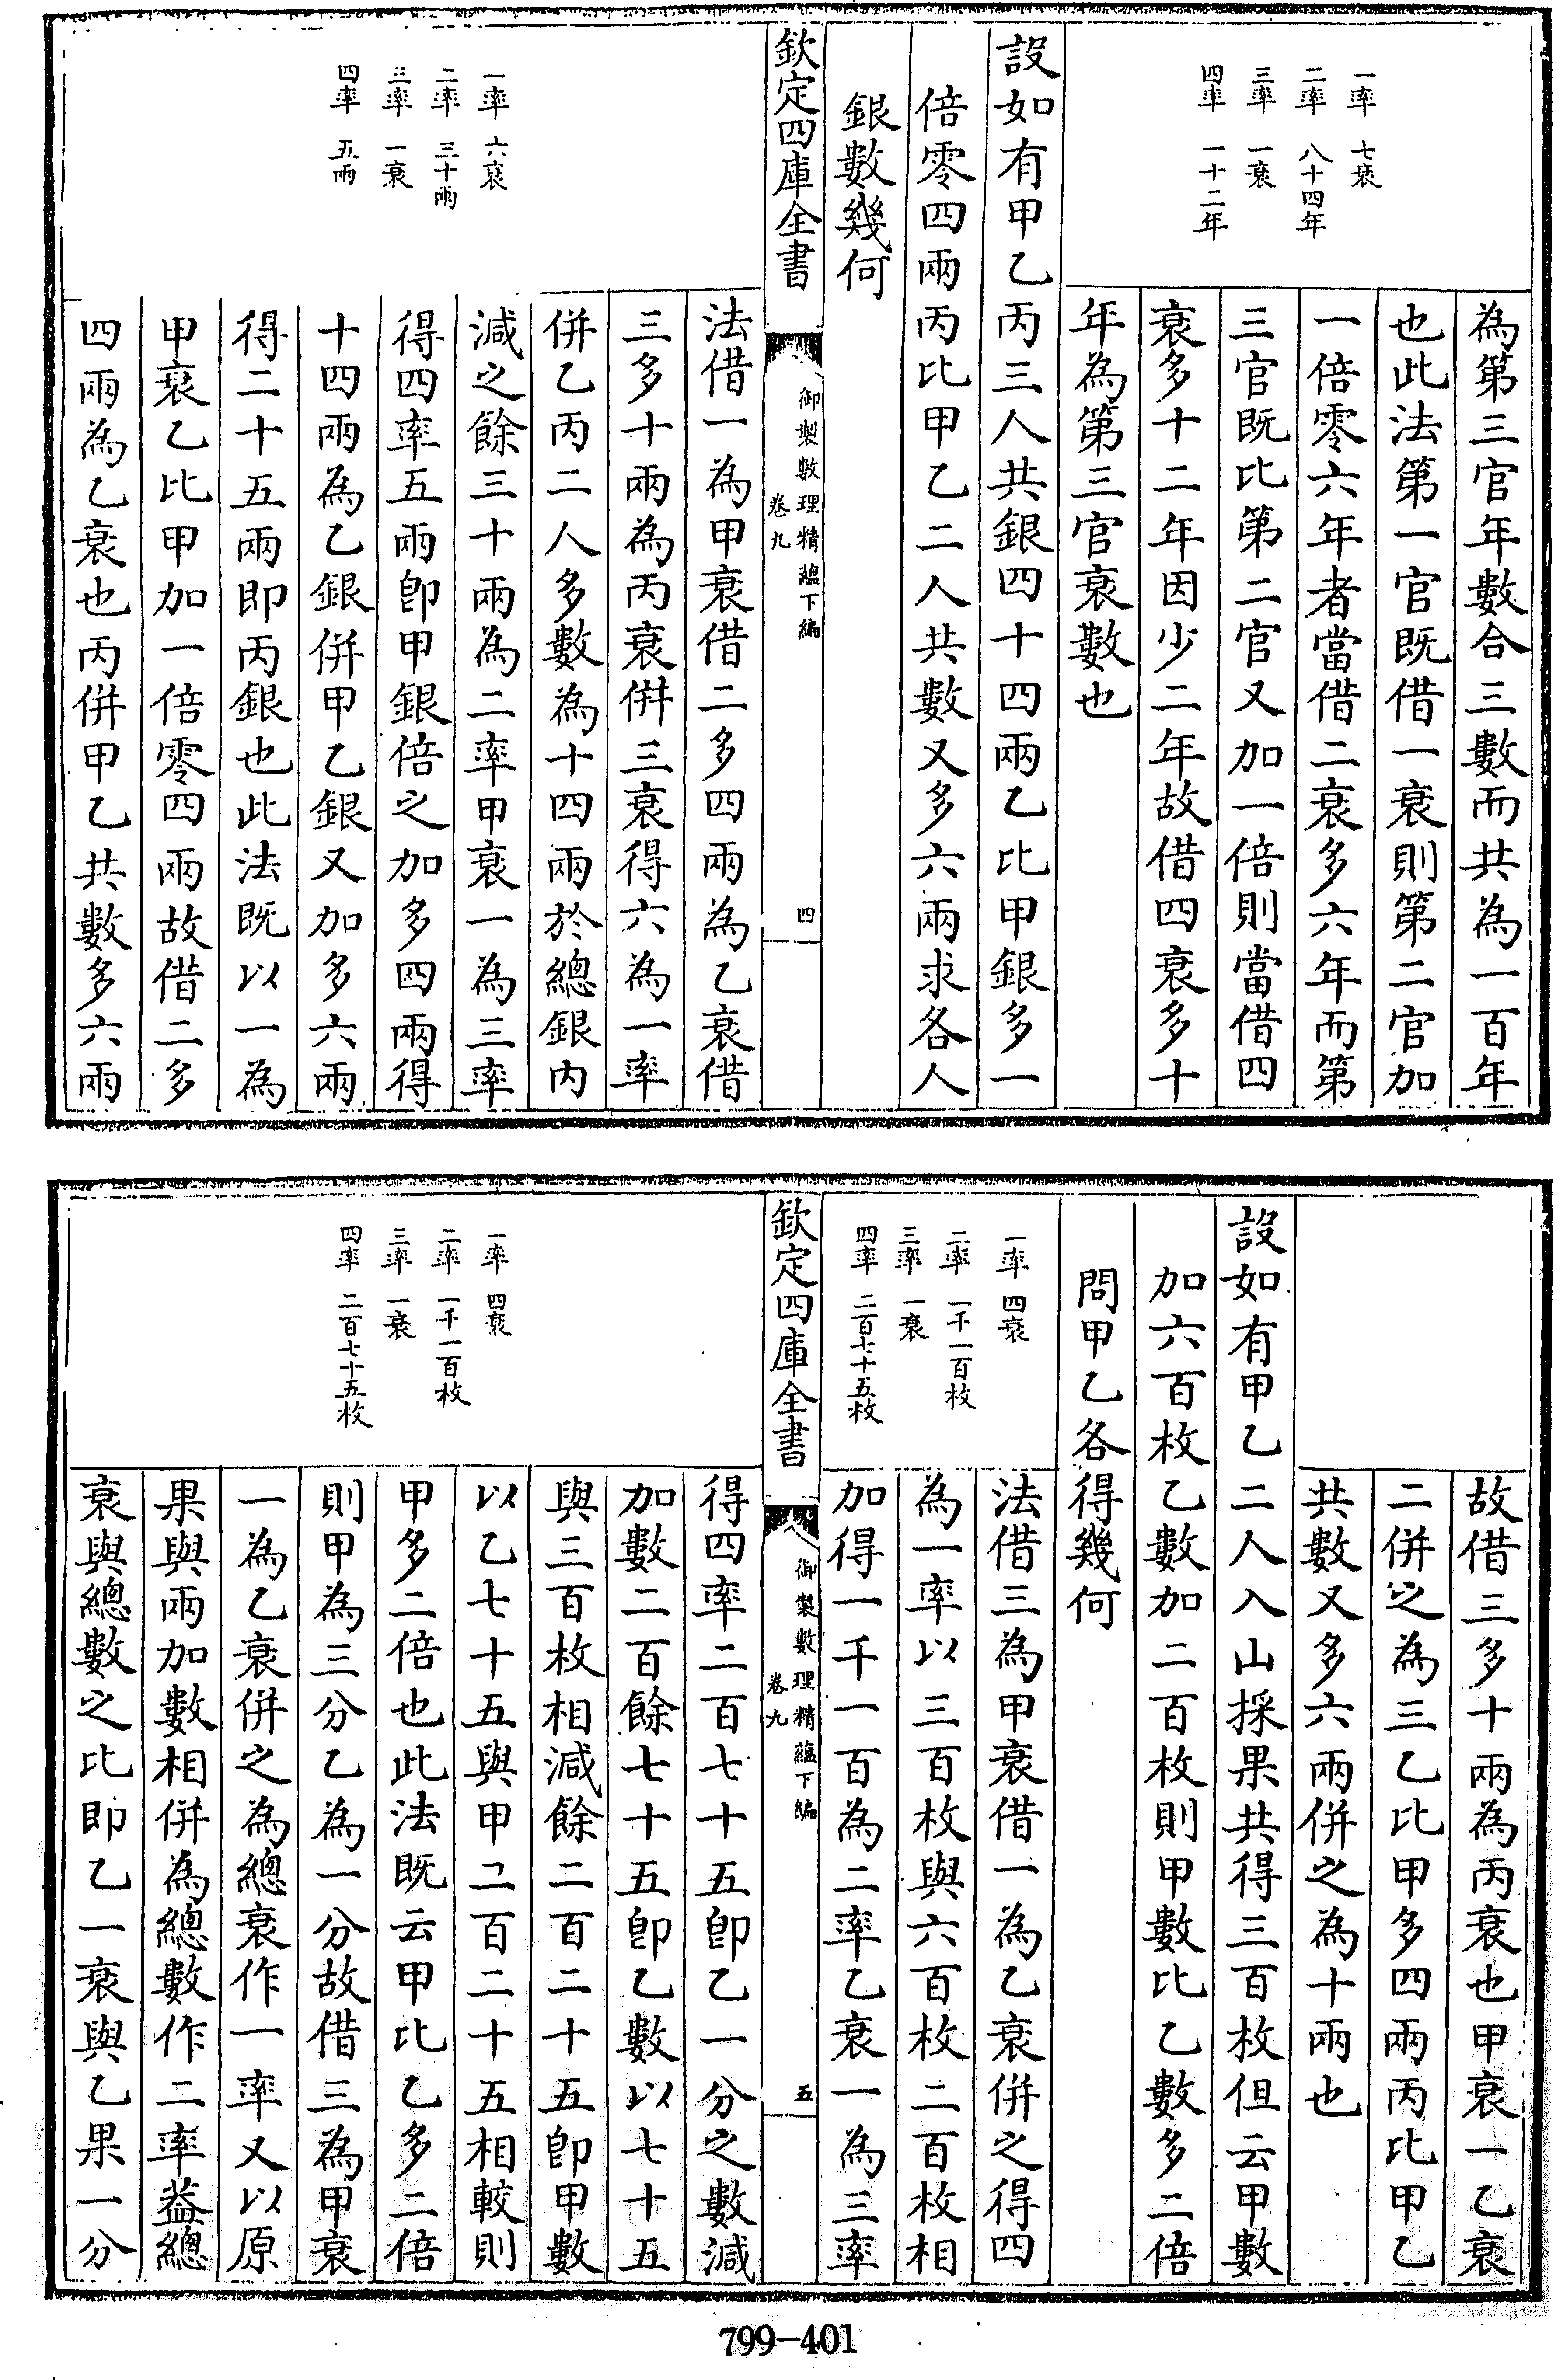 一率　七衰
二率　八十四年
三率　一衰
四率　一十二年
為第三官年數合三數而共為一百年
也此法第一官既借一衰則第二官加
一倍零六年者當借二衰多六年而第
三官既比第二官又加一倍則當借四
衰多十二年因少二年故借四衰多十
年為第三官衰數也
設如有甲乙丙三人共銀四十四兩乙比甲銀多一
倍零四兩丙比甲乙二人共數又多六兩求各人
銀數幾何
欽定四庫全書
御製數理精蘊下編
卷九
四
一率　六衰
二率　三十兩
三率　一衰
四率　五兩
法借一為甲衰借二多四兩為乙衰借
三多十兩為丙衰併三衰得六為一率
併乙丙二人多數為十四兩於總銀內
減之餘三十兩為二率甲衰一為三率
得四率五兩卽甲銀倍之加多四兩得
十四兩為乙銀併甲乙銀又加多六兩
得二十五兩即丙銀也此法既以一為
甲衰乙比甲加一倍零四兩故借二多
四兩為乙衰也丙併甲乙共數多六兩
故借三多十兩為丙衰也甲衰一乙衰
二併之為三乙比甲多四兩丙比甲乙
共數又多六兩併之為十兩也
設如有甲乙二人入山採果共得三百枚但云甲數
加六百枚乙數加二百枚則甲數比乙數多二倍
問甲乙各得幾何
一率　四衰
二率　一千一百枚
三率　一衰
四率　二百七十五枚
法借三為甲衰借一為乙衰併之得四
為一率以三百枚與六百枚二百枚相
加得一千一百為二率乙衰一為三率
欽定四庫全書
御製數理精蘊下編
卷九
五
一率　四衰
二率　一千一百枚
三率　一衰
四率　二百七十五枚
得四率二百七十五卽乙一分之數減
加數二百餘七十五卽乙數以七十五
與三百枚相減餘二百二十五卽甲數
以乙七十五與甲二百二十五相較則
甲多二倍也此法既云甲比乙多二倍
則甲為三分乙為一分故借三為甲衰
一為乙衰併之為總衰作一率又以原
果與兩加數相併為總數作二率葢總
衰與總數之比即乙一衰與乙果一分
799-401